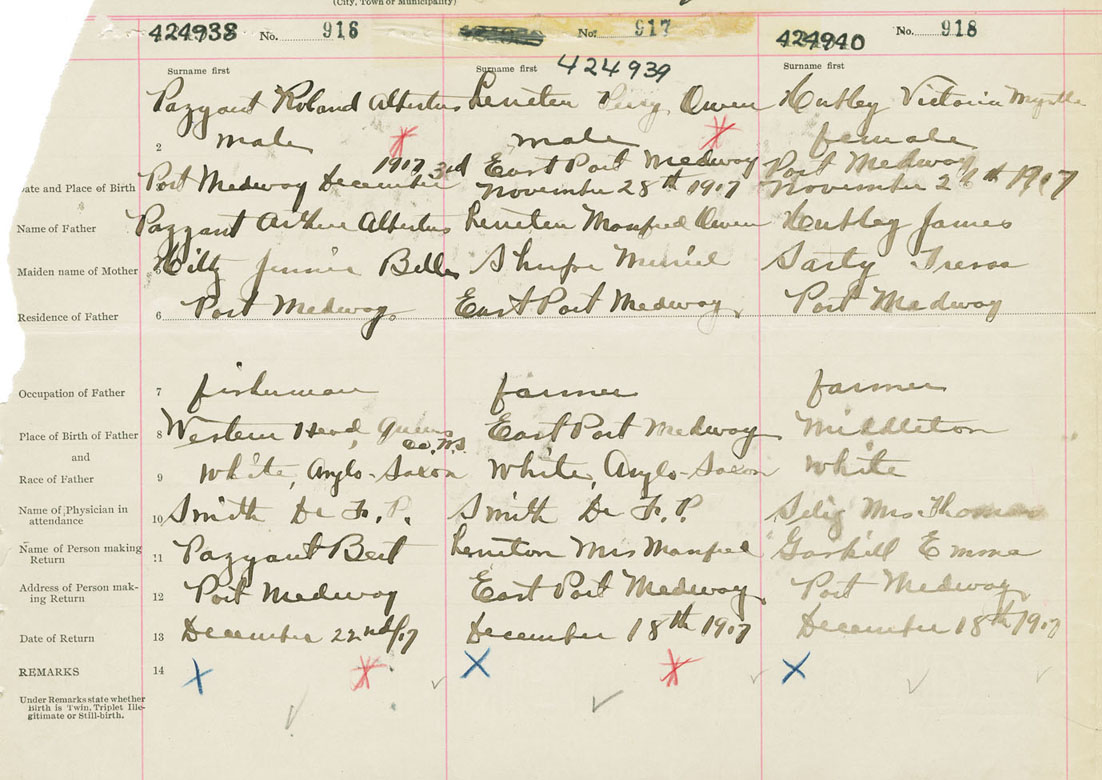 (City, Town or Municipality)
424938 No. 916 No. 917 424940 No. 918
Surname first Surname first 424939 Surname first
Pazzant Roland Albertus Owen Hubley Victoria Myrtle
2 male male female
Date and Place of Birth Port Medway December 3rd 1917 East Port Medway November 28th 1917 Port Medway November 1917
Name of Father Pazzant Arthur Albertus Manfred Owen Hubley James
Maiden name of Mother Jennie Belle Muriel Sarty
Residence of Father 6 Port Medway East Port Medway Port Medway
Occupation of Father 7 fisherman farmer farmer
Place of Birth of Father 8 Western Head, Queens Co, N.S. East Port Medway Middleton
and
Race of Father 9 White, Anglo-Saxon White, Anglo-Saxon White
Name of Physician in attendance 10 Smith Dr F. P. Smith Dr F. P. Selig Mrs. Thomas
Name of Person making Return 11 Pazzant Bert Mrs Manfred Gaskill Emma
Address of Person making Return 12 Port Medway East Port Medway Port Medway
Date of Return 13 December 22nd/17 December 18th 1917 December 18th 1917
REMARKS 14
Under Remarks state whether
Birth is Twin, Triplet Ille-
gitimate or Still-birth.